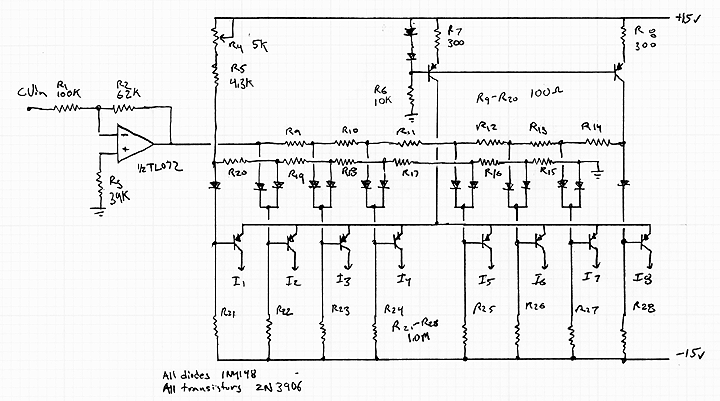 +15V
R4 5K
R7
300
R8
300
R5
4.3K
R6
10K
CVin
R1
100K
R2
62K
R9-R20 100Ω
R9
R10
R11
R12
R13
R14
-
+
½TL072
R3
39K
R20
R19
R18
R17
R16
R15
I1
I2
I3
I4
I5
I6
I7
I8
R21
R22
R23
R24
R25
R26
R27
R28
R21-R28
1.0M
-15V
All diodes 1N4148
All transistors 2N3906